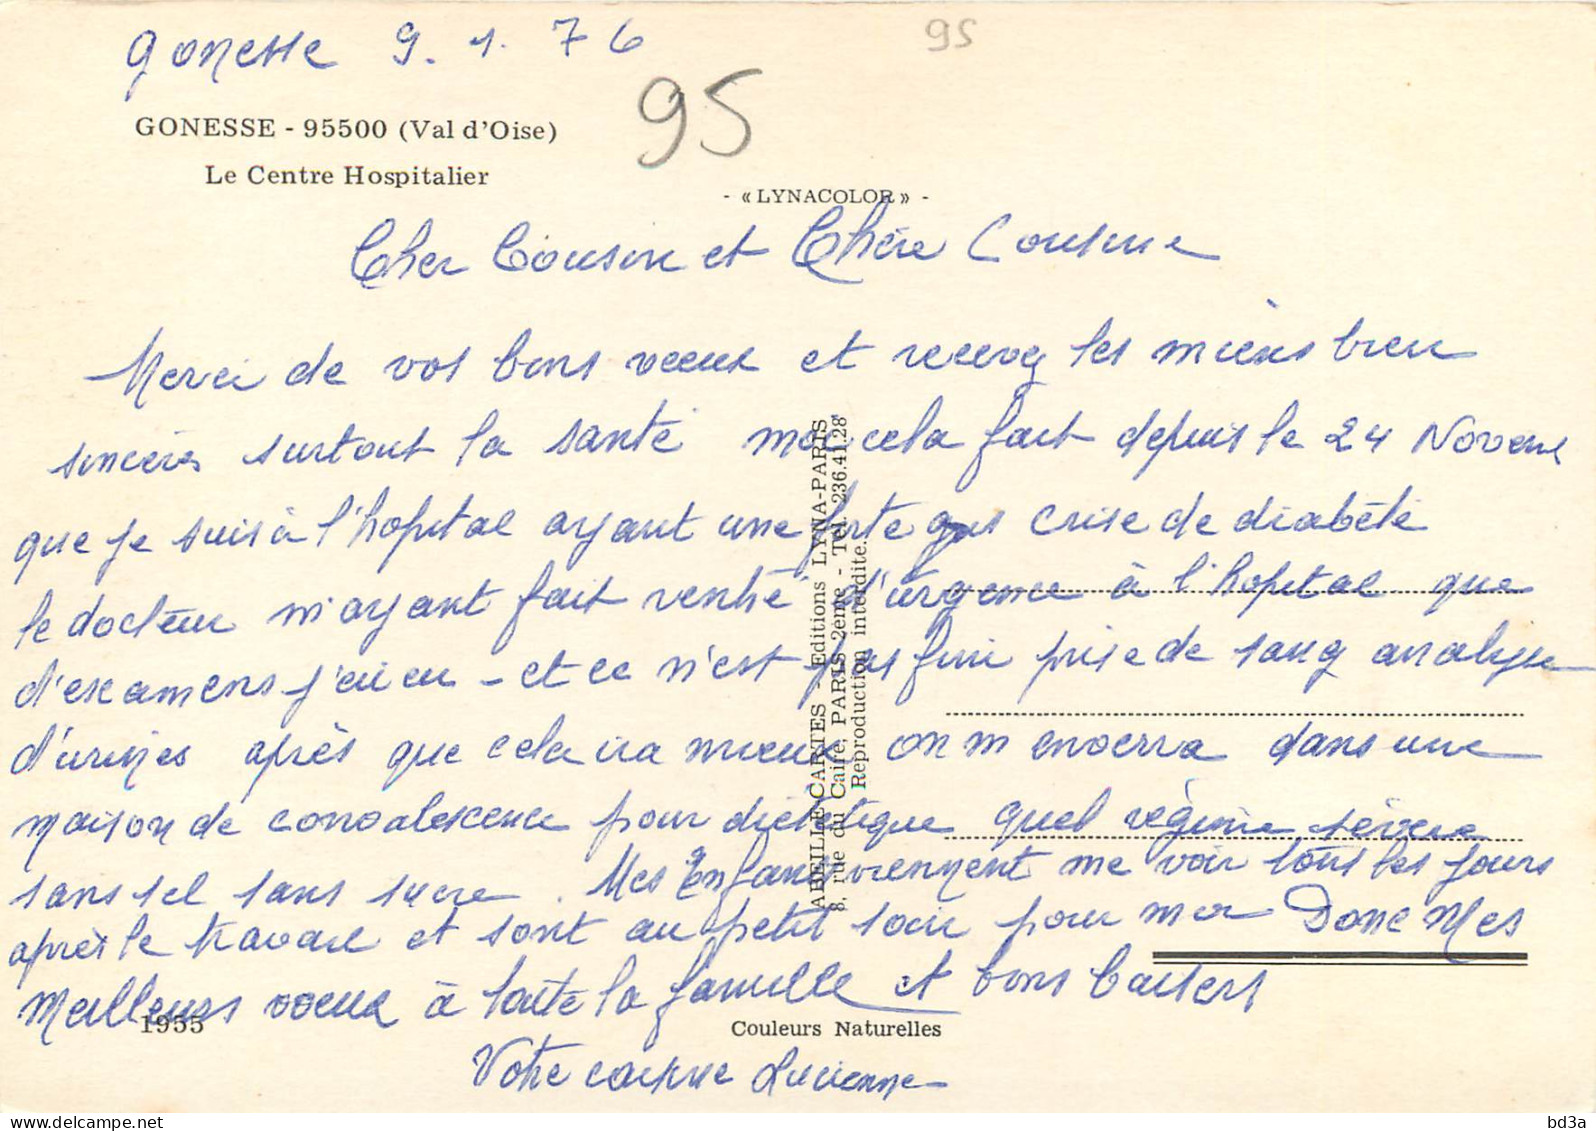 Gonesse 9.1.76
95
GONESSE - 95500 (Val d'Oise)
95
Le Centre Hospitalier
- « LYNACOLOR » -
Cher Cousin et Chère Cousine
Merci de vos bons vœux et recevez les miens bien
sincères surtout la santé moi cela fait depuis le 24 Novem
que je suis à l'hopital ayant une forte crise de diabète
le docteur m'ayant fait rentré d'urgence à l'hopital que
d'examens j'ai eu - et ce n'est pas fini prise de sang analyse
d'urines après que cela ira mieux on m'enverra dans une
maison de convalescence pour diététique quel régime sévère
sans sel sans sucre. Mes Enfants viennent me voir tous les jours
après le travail et sont au petit soin pour moi Donc Mes
Meilleurs vœux à toute la famille et bons baisers
Votre cousine Lucienne
ABEILLE CARTES - Editions LYNA-PARIS
8, rue du Caire, PARIS-2eme - Tél. 236.41.28
Reproduction interdite.
1955
Couleurs Naturelles
delcampe.net
bd3a